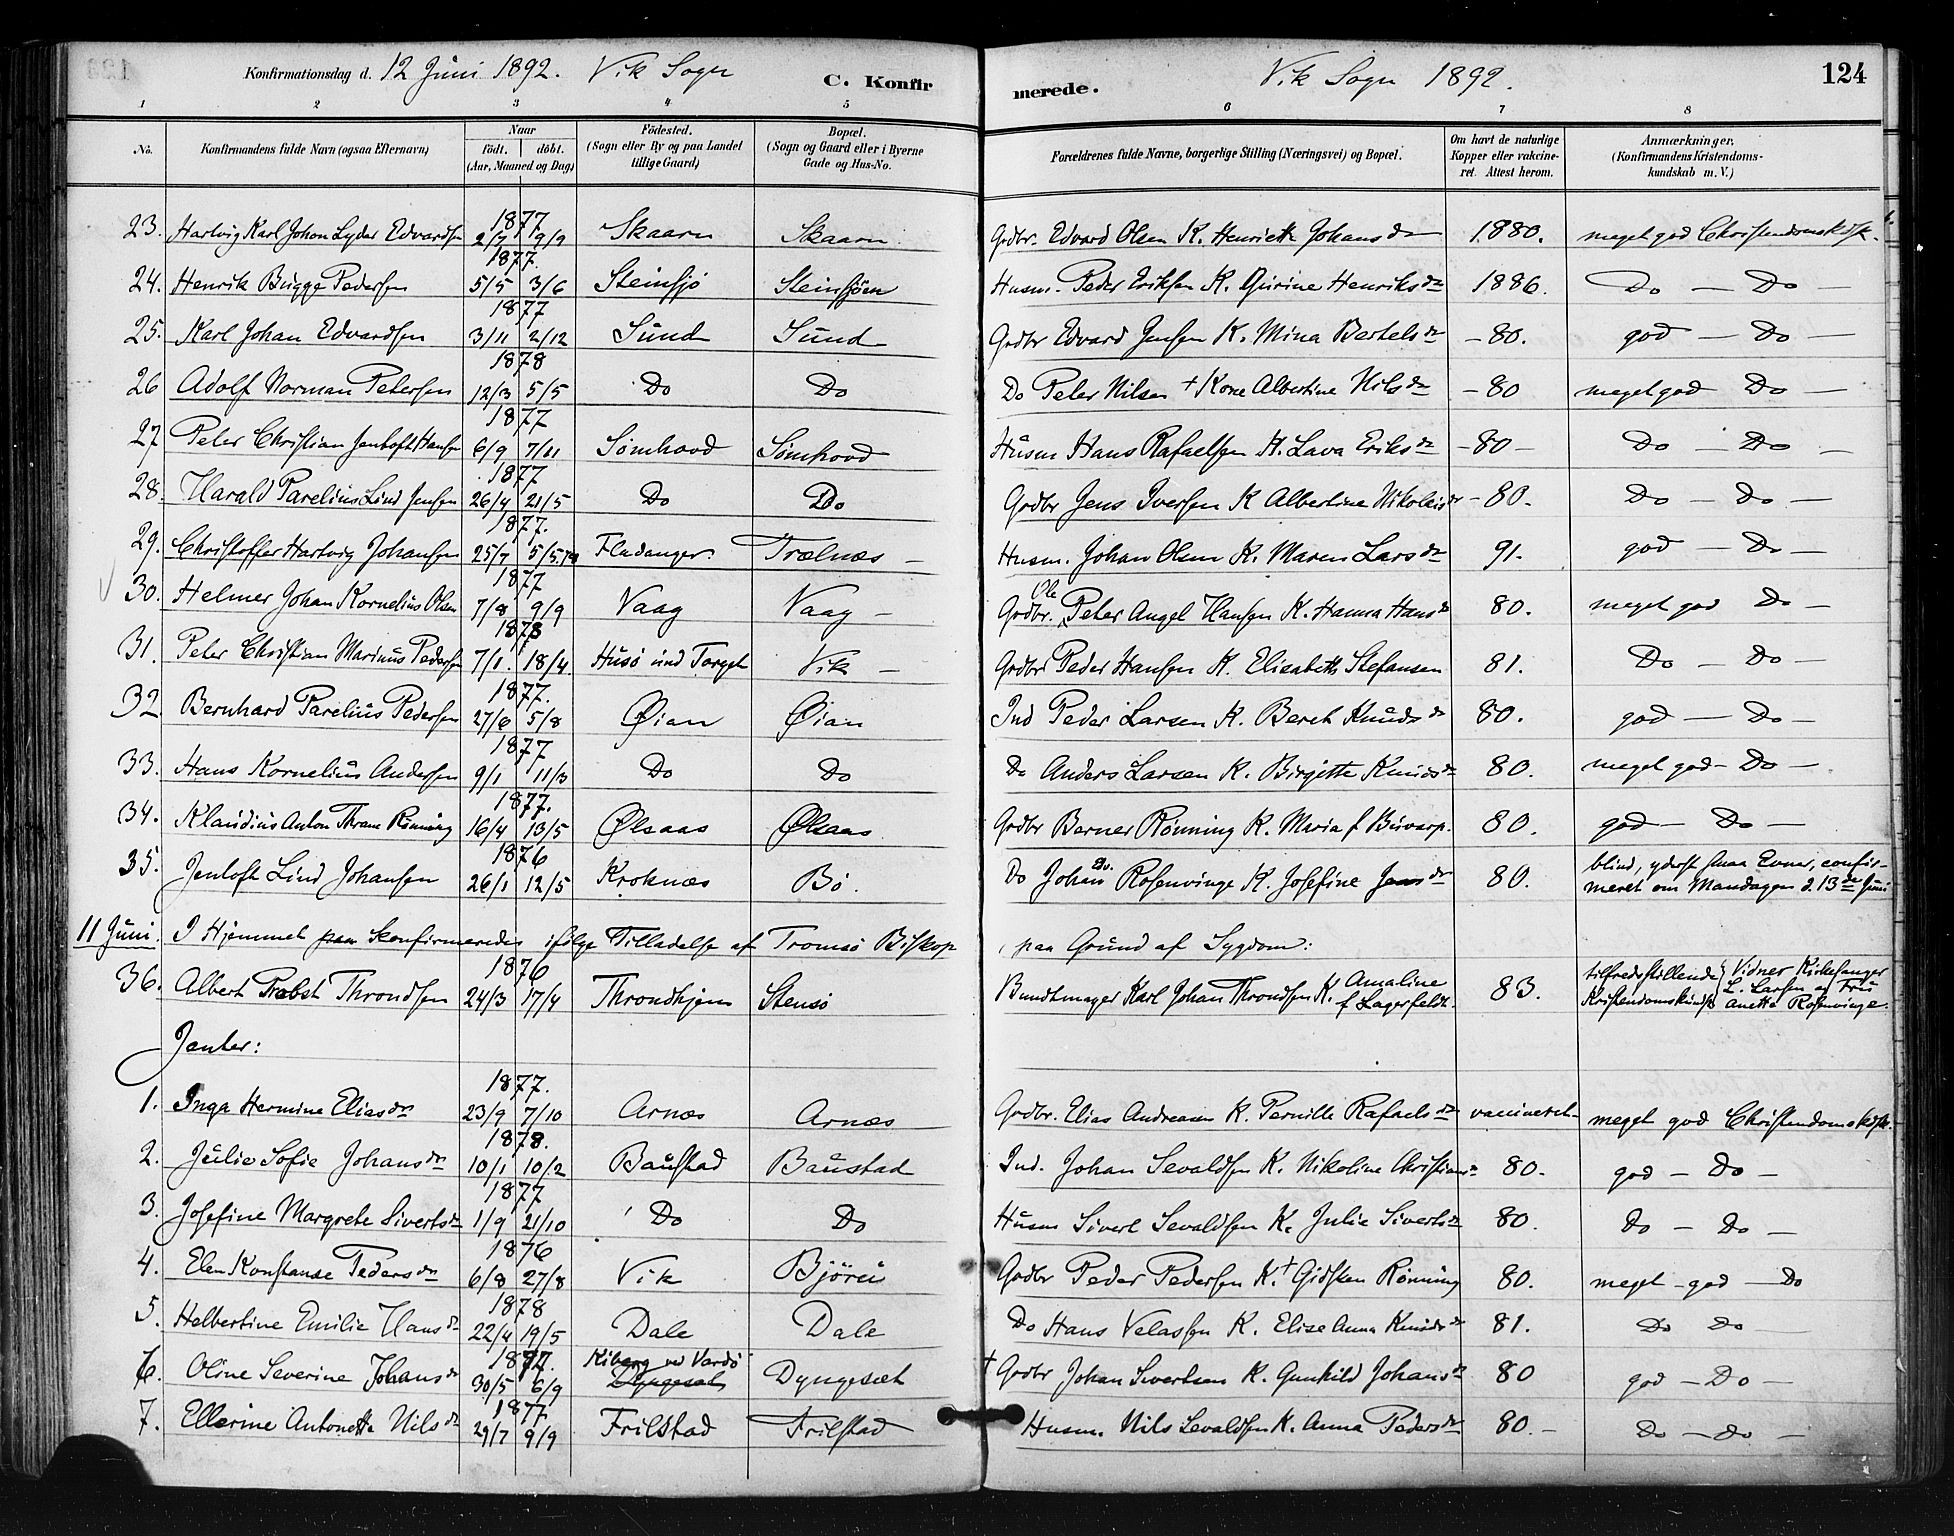 Konfirmationsdag d. 12 Juni 1892. Vik Sogn C. Konfir
merede. Vik Sogn 1892. 124
1 2 3 4 5 6 7 8
No. Konfirmandens fulde Navn (ogsaa Efternavn) Naar födt. döbt. (Aar, Maaned og Dag) Födested. (Sogn eller By og paa Landet tillige Gaard) Bopæl. (Sogn og Gaard eller i Byerne Gade og Hus-No. Forældrenes fulde Navne, borgerlige Stilling (Næringsvei) og Bopæl. Om havt de naturlige Kopper eller vakcineret. Attest herom. Anmærkninger. (Konfirmandens Kristendomskundskab m. V.)
23. Hartvig Karl Johan Lyder Edvardsen 1877 2/7 9/9 Skaarn Skaarn Grdbr. Edvard Olsen K. Henriette Johansdr 1880. meget god Christendomskdsk.
24. Henrik Bugge Pedersen 1877. 5/5 3/6 Steinsjö Steinsjöen Husm. Peder Eriksen K. Gurine Henriksdr 1886. Do — Do —
25. Karl Johan Edvardsen 1877 3/11 2/12 Sund Sund Grdbr Edvard Jensen K. Mina Bertelsdr - 80. god — Do —
26 Adolf Norman Petersen 1878 12/3 5/5 Do Do Do Peter Nilsen + Kone Albertine Nilsdr - 80 meget god Do —
27 Peter Christian Jentoft Hansen 1877 6/9 7/11 Sömhovd Sömhovd Husm Hans Rafaelsen K. Lava Eriksdr - 80 - Do — Do —
28. Harald Parelius Lind Jensen 1877 26/4 21/5 Do Do Grdbr Jens Iversen K Albertine Nikolaisdr - 80. Do — Do —
29. Christoffer Hartvig Johansen 1877. 25/7 5/5.78 Fladanger. Trælnæs — Husm. Johan Olsen K. Maren Larsdr 91. god — Do —
30. Helmer Johan Kornelius Olsen 1877 7/8 9/9 Vaag Vaag — Grdbr. Ole Peter Angel Hansen K. Hanna Hansdr 80. meget god Do —
31. Peter Christian Marinus Pedersen 1878 7/1. 18/4. Husö ind Torget Vik — Grdbr Peder Hansen K. Elisabeth Stefansen 81. Do — Do —
32. Bernhard Parelius Pedersen 1877. 27/6 5/8 Øian Øian Ind Peder Larsen K. Beret Knudsdr 80. god — Do —
33. Hans Kornelius Andersen 1877 9/1 11/3 Do Do Do Anders Larsen K. Birgitte Knudsdr 80. meget god — Do —
34. Klaudius Anton Thrane Rönning 1877. 16/4 13/5 Ølsaas Ølsaas Grdbr Berner Rönning K. Maria f Buvarp. 80. god — Do —
35. Jentoft Lind Johansen 1876 26/1 12/5 Kroknæs Bö. Do Johan Do. Rosenvinge K. Josefine Jensdr 80. blind, yderst smaa Evner, confirmeret om Mandagen d. 13de Juni
11 Juni. I Hjemmet paa konfirmeredes ifölge Tilladelse af Tromsö Biskop paa Grund af Sygdom:
36. Albert Probst Throndsen 1876 24/3 17/4 Throndhjem Stensö Bundtmager Karl Johan Throndsen K. Amaline f Lagerfeldt. 83. tilfredsstillende Kristendomskundsk. Vidner Kirkesanger L. Larsen og Fru Anetta Rosenvinge.
Jenter:
1. Inga Hermine Eliasdr 1877. 23/9 7/10 Arnæs Arnæs Grdbr. Elias Andreasen K. Pernille Rafaelsdr vaccineret — meget god Christendomskdsk.
2. Julie Sofie Johansdr 1878. 10/1 10/2 Baustad Baustad Ind. Johan Sevaldsen K. Nikoline Christiansdr 80. god — Do —
3. Josefine Margrete Sivertsdr 1877 1/9 21/10 Do Do Husm Sivert Sevaldsen K. Julie Sivertsdr 80. Do — Do —
4. Elen Konstanse Pedersdr 1876 6/8 27/8 Vik Björu Grdbr Peder Pedersen K. + Gidsken Rönning 80. meget — god — Do
5. Helbertine Emilie Hansdr 1878 22/4 19/5 Dale Dale Do Hans Velassen K. Elise Anna Knudsdr 81. Do Do —
6. Oline Severine Johansdr 1877. 30/5 6/9 Kiberg ved Vardö Dyngesæt Dyngesæt + Grdbr Johan Sivertsen K. Gunhild Johansdr 80 god — Do —
7. Ellerine Antonette Nilsdr 1877 29/7 9/9 Frilstad Frilstad Husm. Nils Sevaldsen K. Anna Pedersdr 80. — Do — Do —